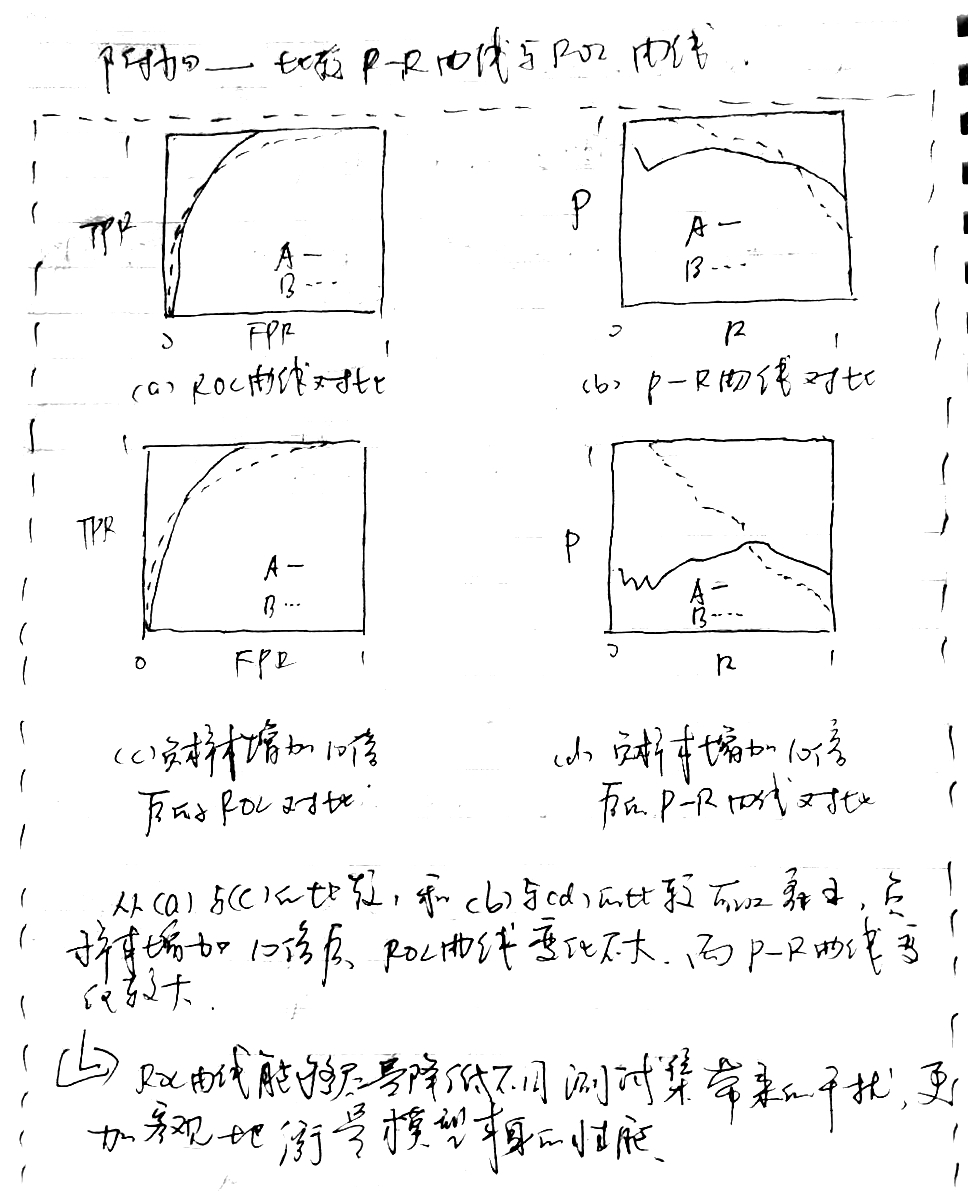 附加一 比较P-R曲线与ROC曲线.
1
TPR
A —
B ---
0 FPR 1
(a) ROC曲线对比
1
P
A —
B ----
0 R 1
(b) P-R曲线对比
1
TPR
A —
B ---
0 FPR 1
1
P
A —
B ----
0 R 1
(c) 负样本增加10倍
后的ROC对比
(d) 负样本增加10倍
后的P-R曲线对比
从(a)与(c)的比较,和(b)与(d)的比较可以看出,负
样本增加10倍后、ROC曲线变化不大、而P-R曲线变
化较大.
ROC曲线能够尽量降低不同测试集带来的干扰,更
加客观地衡量模型本身的性能、